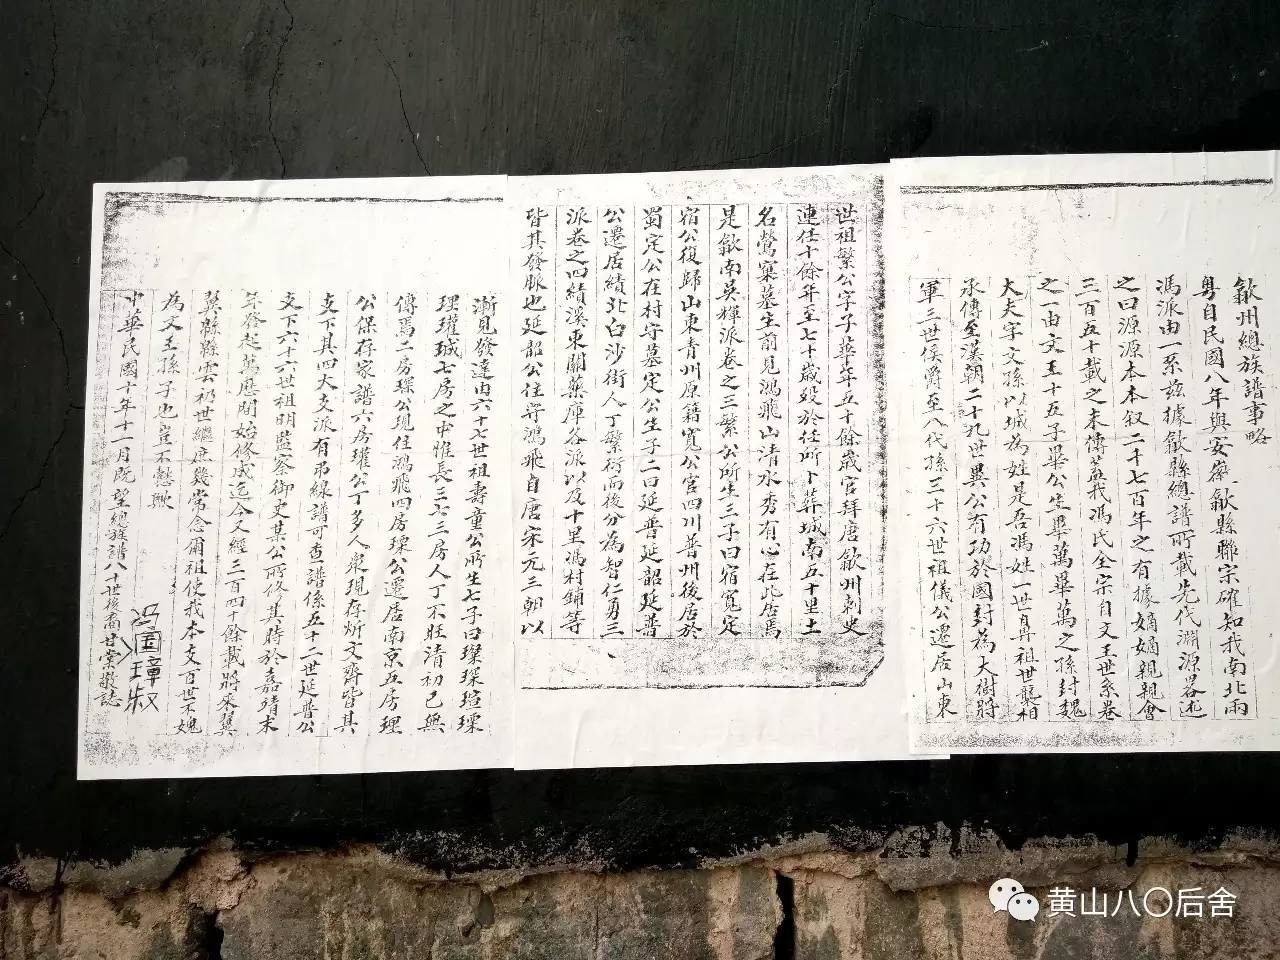 歙州總族譜事略
粵自民國八年與安徽歙縣聯宗確知我南北兩
馮派由一系茲據歙縣總譜所載先代淵源畧述
之曰源源本本叙二千七百年之有據嫡嫡親親會
三百五十載之未傳蓋我馮氏全宗自文王世系卷
之一由文王十五子畢公生畢萬畢萬之孫封魏
大夫字文孫以城為姓是吾馮姓一世鼻祖世襲相
承傳至漢朝二十九世異公有功於國封為大樹將
軍三世侯爵至八代孫三十六世祖儀公遷居山東
世祖繁公字子華年五十餘歲官拜唐歙州刺史
連任十餘年至七十歲歿於任所卜葬城南五十里土
名鶯窠墓生前見鴻飛山清水秀有心在此居焉
是歙南吳輝派卷之三繁公所生三子曰宿寬定
宿公復歸山東青州原籍寬公宮四川普州後居於
蜀定公在村守墓定公生子二曰延普延韶延普
公遷居績北白沙街人丁繁衍而後分為智仁勇三
派卷之四績溪東關藥庫谷派以及十里馮村鋪等
皆其發脈也延韶公住守鴻飛自唐宋元三朝以
漸見發達由六十七世祖壽童公所生七子曰璨琛瑄瑮
理瓘珹七房之中惟長三七三房人丁不旺清初已無
傳焉二房琛公現住鴻飛四房瑮公遷居南京五房理
公保存家譜六房瓘公丁多人衆現存炘文齊皆其
支下其四大支派有吊線譜可查譜係五十二世延普公
支下六十六世祖明監察御史某公所修其時於嘉靖末
年發起萬歷間始修成迄今又經三百四十餘載將來冀
冀縣縣雲礽世繼庶幾常念爾祖使我本支百世不媿
為文王孫子也豈不懿歟
中華民國十年十一月既望總族譜八十世後裔甘棠敬誌
冯國璋叔
黄山八〇后舍